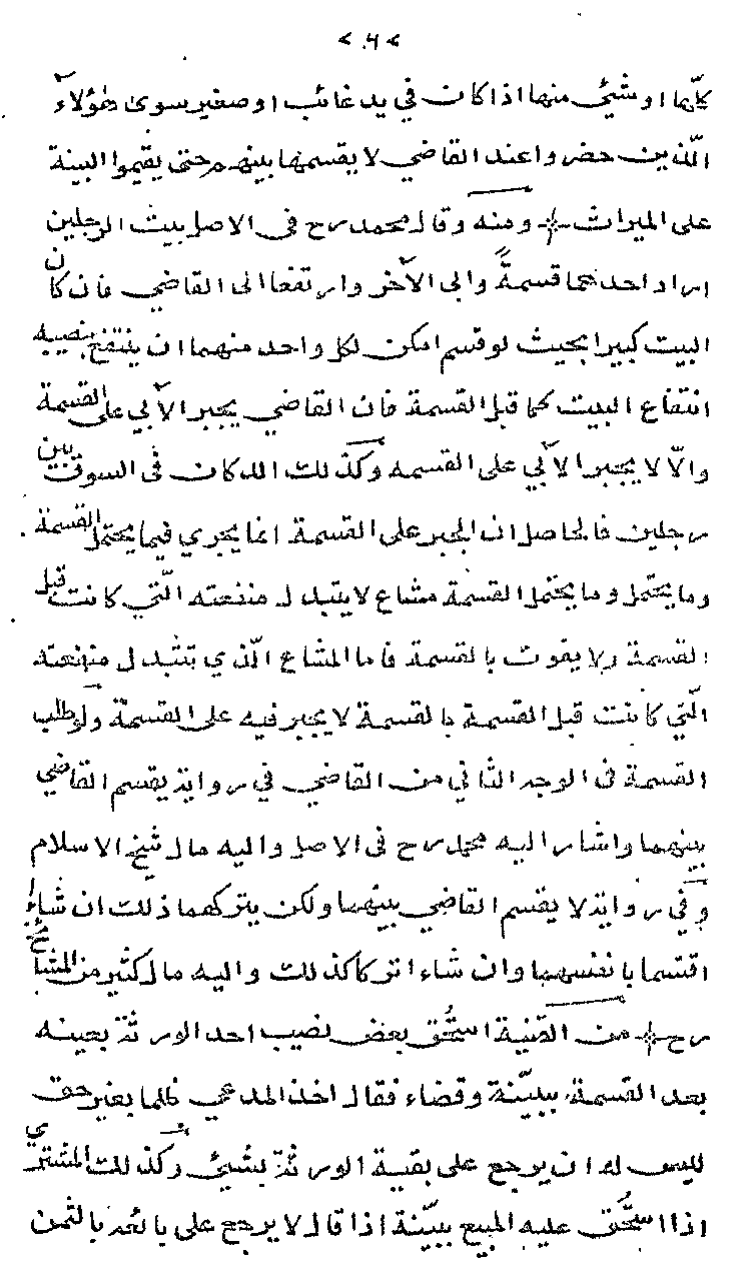 < ٠٦ >
كلّها او شيئ منها اذا كان في يد غائب او صغير سوى هؤلآء
الّذين حضروا عند القاضي لا يقسمها بينهم حتى يقيموا البينة
على الميراث ومنه وقال محمد رح فى الاصل بيت الرجلين
اراد احدهما قسمةً وابى الآخر وارتفعا الى القاضي فان كان
البيت كبيرا بحيث لو قسم امكن لكل واحد منهما ان ينتفع بنصيبه
انتفاع البيت كما قبل القسمة فان القاضي يجبر الآبي على القسمة
والاّ لا يجبر الآبي على القسمه وكذلك الدكان فى السوق بين
رجلين فالحاصل ان الجبر على القسمة انما يجري فيما يحتمل القسمة
وما يحتمل وما يحتمل القسمة مشاع لا يتبدل منفعته الّتي كانت قبل
القسمة ولا يفوت بالقسمة فاما المشاع الّذي تتبدل منفعته
الّتي كانت قبل القسمة بالقسمة لا يجبر فيه على القسمة ولو طلب
القسمة فى الوجه الثاني من القاضي في رواية يقسم القاضي
بينهما واشار اليه محمد رح فى الاصل واليه مال شيخ الاسلام
وفي رواية لا يقسم القاضي بينهما ولكن يتركهما ذلك ان شاءا
اقتسما بانفسهما وان شاءا تركا كذلك واليه مال كثير من المشايخ
رح من القنية استُحق بعض نصيب احد الورثة بعينه
بعد القسمة ببيّنة وقضاء فقال اخذ المدعي ظلما بغير حق
ليس له ان يرجع على بقية الورثة بشيئ وكذلك المشتري
اذا استُحق عليه المبيع ببيّنة اذا قال لا يرجع على بائعه بالثمن